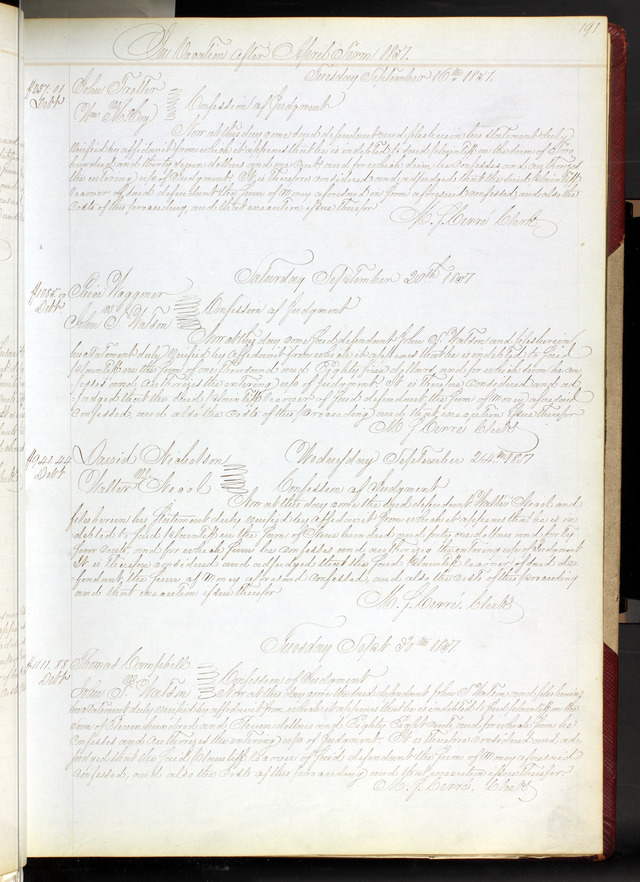 191
In Vacation after April Term 1857.
Tuesday September 16th 1857.
John Trotter
Debt
Confession of Judgment
Wm
Now at this day came said defendant and files herein his statement duly
verified by affidavit from which it appears that he is indebted to said plaintiff in the sum of
hundred and thirty seven dollars and one cent and for which sum he confesses and authorizes
the entering up of Judgment. It is therefore considered and adjudged that the said plaintiff
recover of said defendant the sum of money aforesaid in form aforesaid confessed and also the
costs of this proceeding, and that execution issue therefor
M. S. Cerré Clerk
Saturday September 20th 1857
$1085.00
Debt
Waggoner
vs
Confession of Judgment
John S. Watson
Now at this day came said defendant John S. Watson and files herein
his statement duly verified by affidavit from which it appears that he is indebted to said
plaintiff in the sum of one thousand and Eighty five dollars and for which sum he con-
fesses and authorizes the entering up of Judgment. It is therefore considered and ad-
judged that the said plaintiff recover of said defendant the sum of money aforesaid
confessed, and also the costs of this proceeding and that execution issue therefor
M. S. Cerré Clerk
$941.44
Debt
David Nicholson
Wednesday September 24th 1857
vs
Walter
Confession of Judgment
Now at this day came the said defendant Walter and
files herein his statement duly verified by affidavit from which it appears that he is in-
debted to said plaintiff in the sum of Nine hundred and forty one dollars and forty
four cents, and for which sum he confesses and authorizes the entering up of Judgment
It is therefore considered and adjudged that the said plaintiff recover of said de-
fendant, the sum of money aforesaid confessed, and also the cost of this proceeding
and that execution issue therefor
M. S. Cerré. Clerk
Tuesday Sept 30th 1857
Debt
Thomas Campbell
vs
Confession of Judgment
John S. Watson
Now at this day came the said defendant John S. Watson and files herein
his statement duly verified by affidavit from which it appears that he is indebted to said plaintiff in the
sum of Eleven hundred and Eleven dollars and Eighty Eight cents and for which sum he
confesses and authorizes the entering up of Judgment. It is therefore considered and ad-
judged that the said Plaintiff recover of said defendant the sum of money aforesaid
confessed, and also the costs of this proceeding and that execution issue therefor.
M. S. Cerré. Clerk